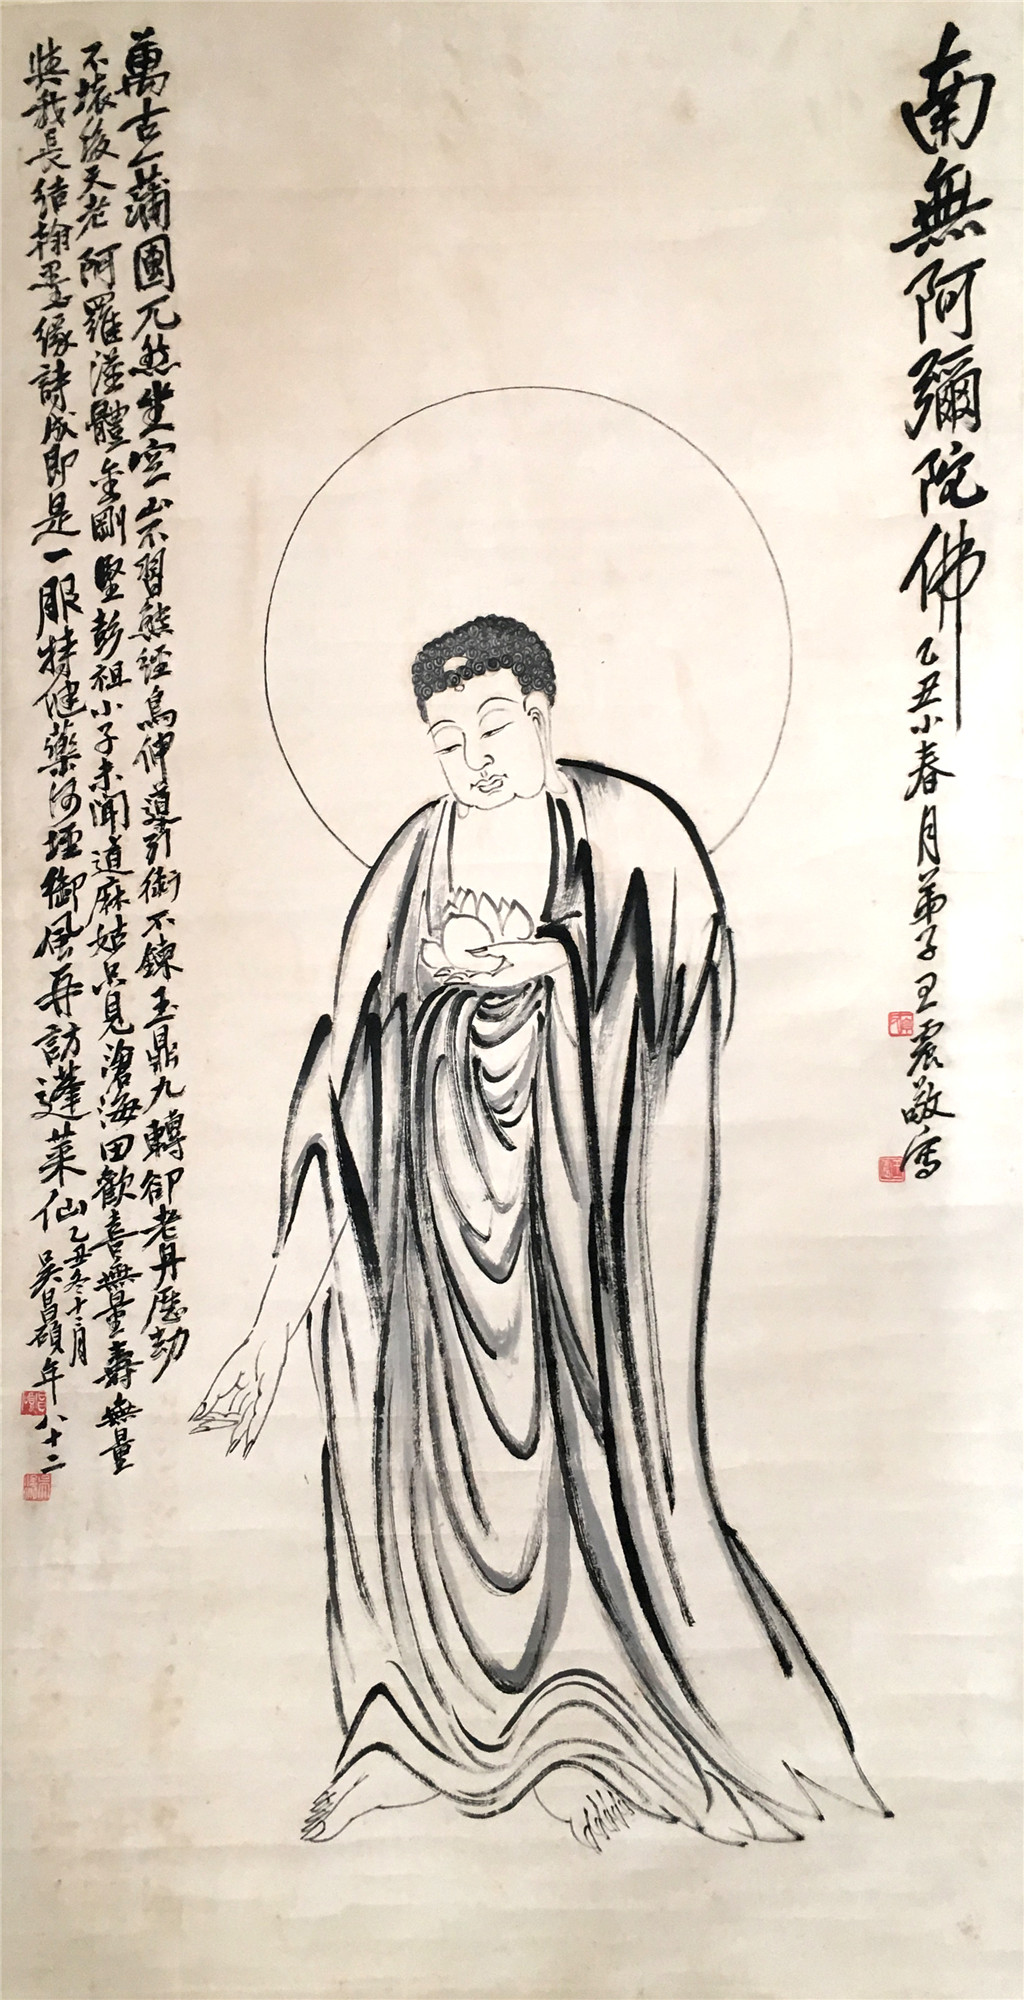 南無阿彌陀佛
乙丑小春月弟子王震敬寫
萬古一蒲團兀然坐空山不習熊經鳥伸導引術不鍊玉鼎九轉卻老丹歷劫
不壞後天老阿羅漢體金剛堅彭祖小子未聞道麻姑只見滄海田歡喜無量壽無量
與我長結翰墨緣詩成即是一服特健藥御風再訪蓬萊仙
乙丑冬十二月
吳昌碩年八十二